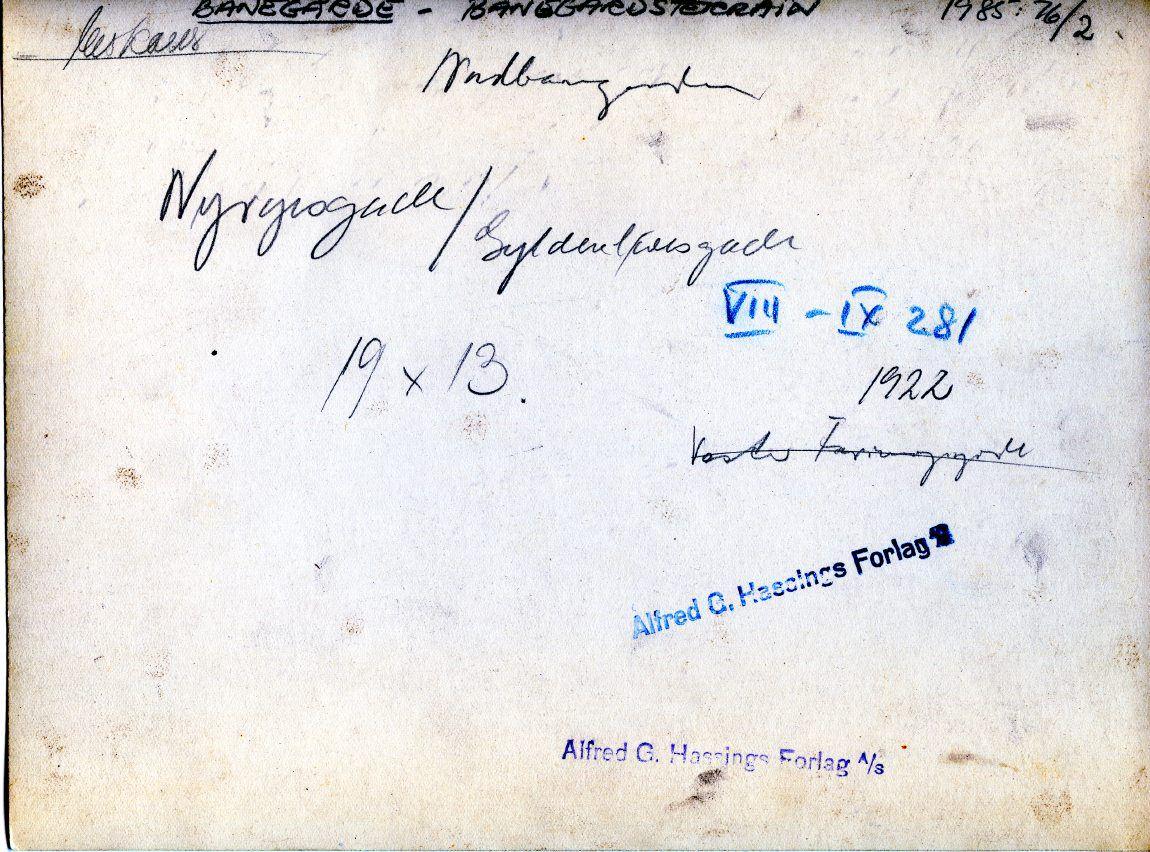 BANEGÅRDE - BANEGÅRDSTERRAIN 1985:76/2
Nordbanegården
Nyropsgade/
Gyldenløvesgade
VIII - IX 281
19 x 13.
1922
Vester Farimagsgade
Alfred G. Hassings Forlag
Alfred G. Hassings Forlag A/s